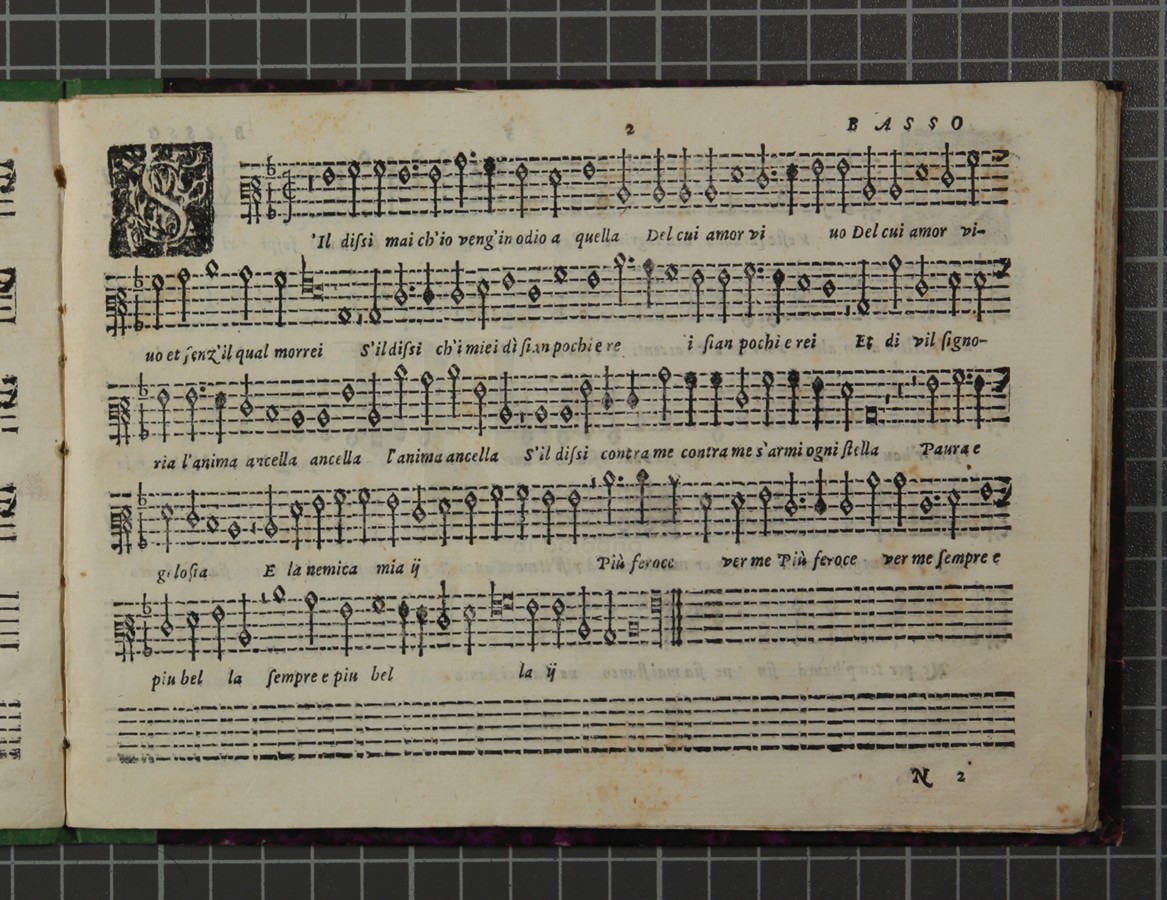 2
BASSO
S'Il diſsi mai ch'io veng'in odio a quella Del cui amor vi uo Del cui amor vi-
uo et ſenz'il qual morrei S'il diſsi ch'i miei dì ſian pochi e re i ſian pochi e rei Et di vil ſigno-
ria l'anima ancella ancella l'anima ancella S'il diſsi contra me contra me s'armi ogni ſtella Paura e
geloſia E la nemica mia ij Più feroce ver me Più feroce ver me ſempre e
piu bel la ſempre e piu bel la ij
N 2